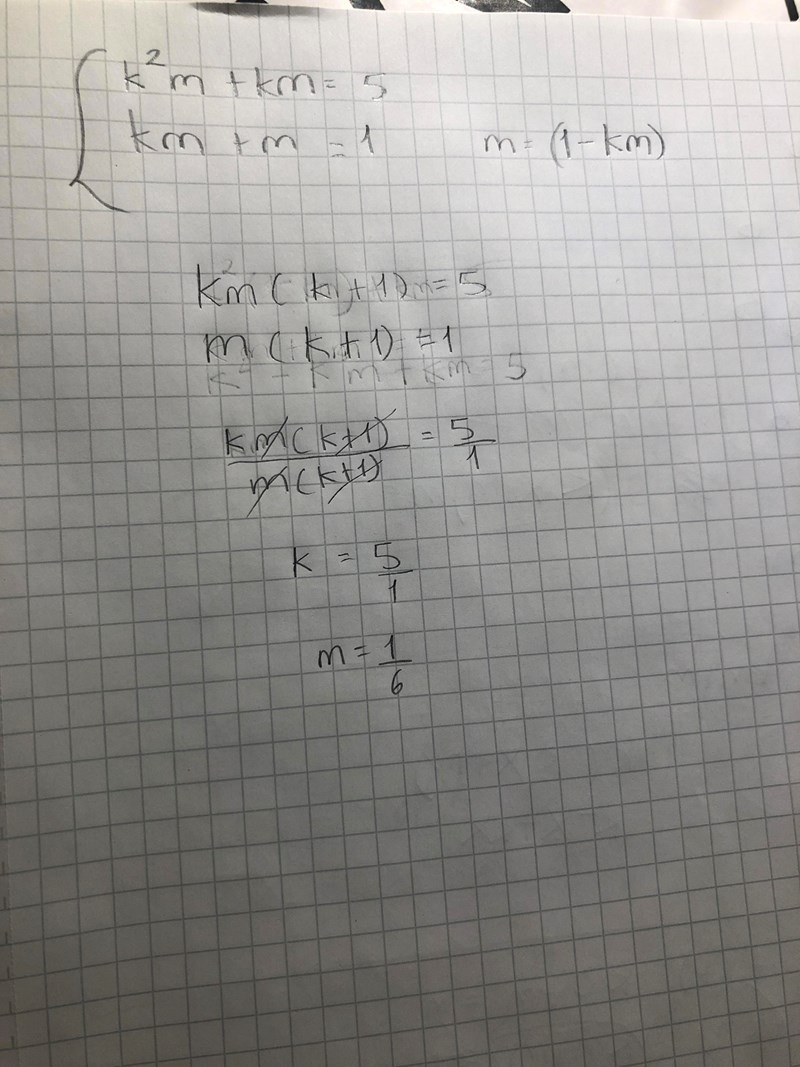 k²m + km = 5
km + m = 1 m = (1 - km)
km (k + 1) = 5
m (k + 1) = 1
km(k+1) / m(k+1) = 5/1
k = 5/1
m = 1/6